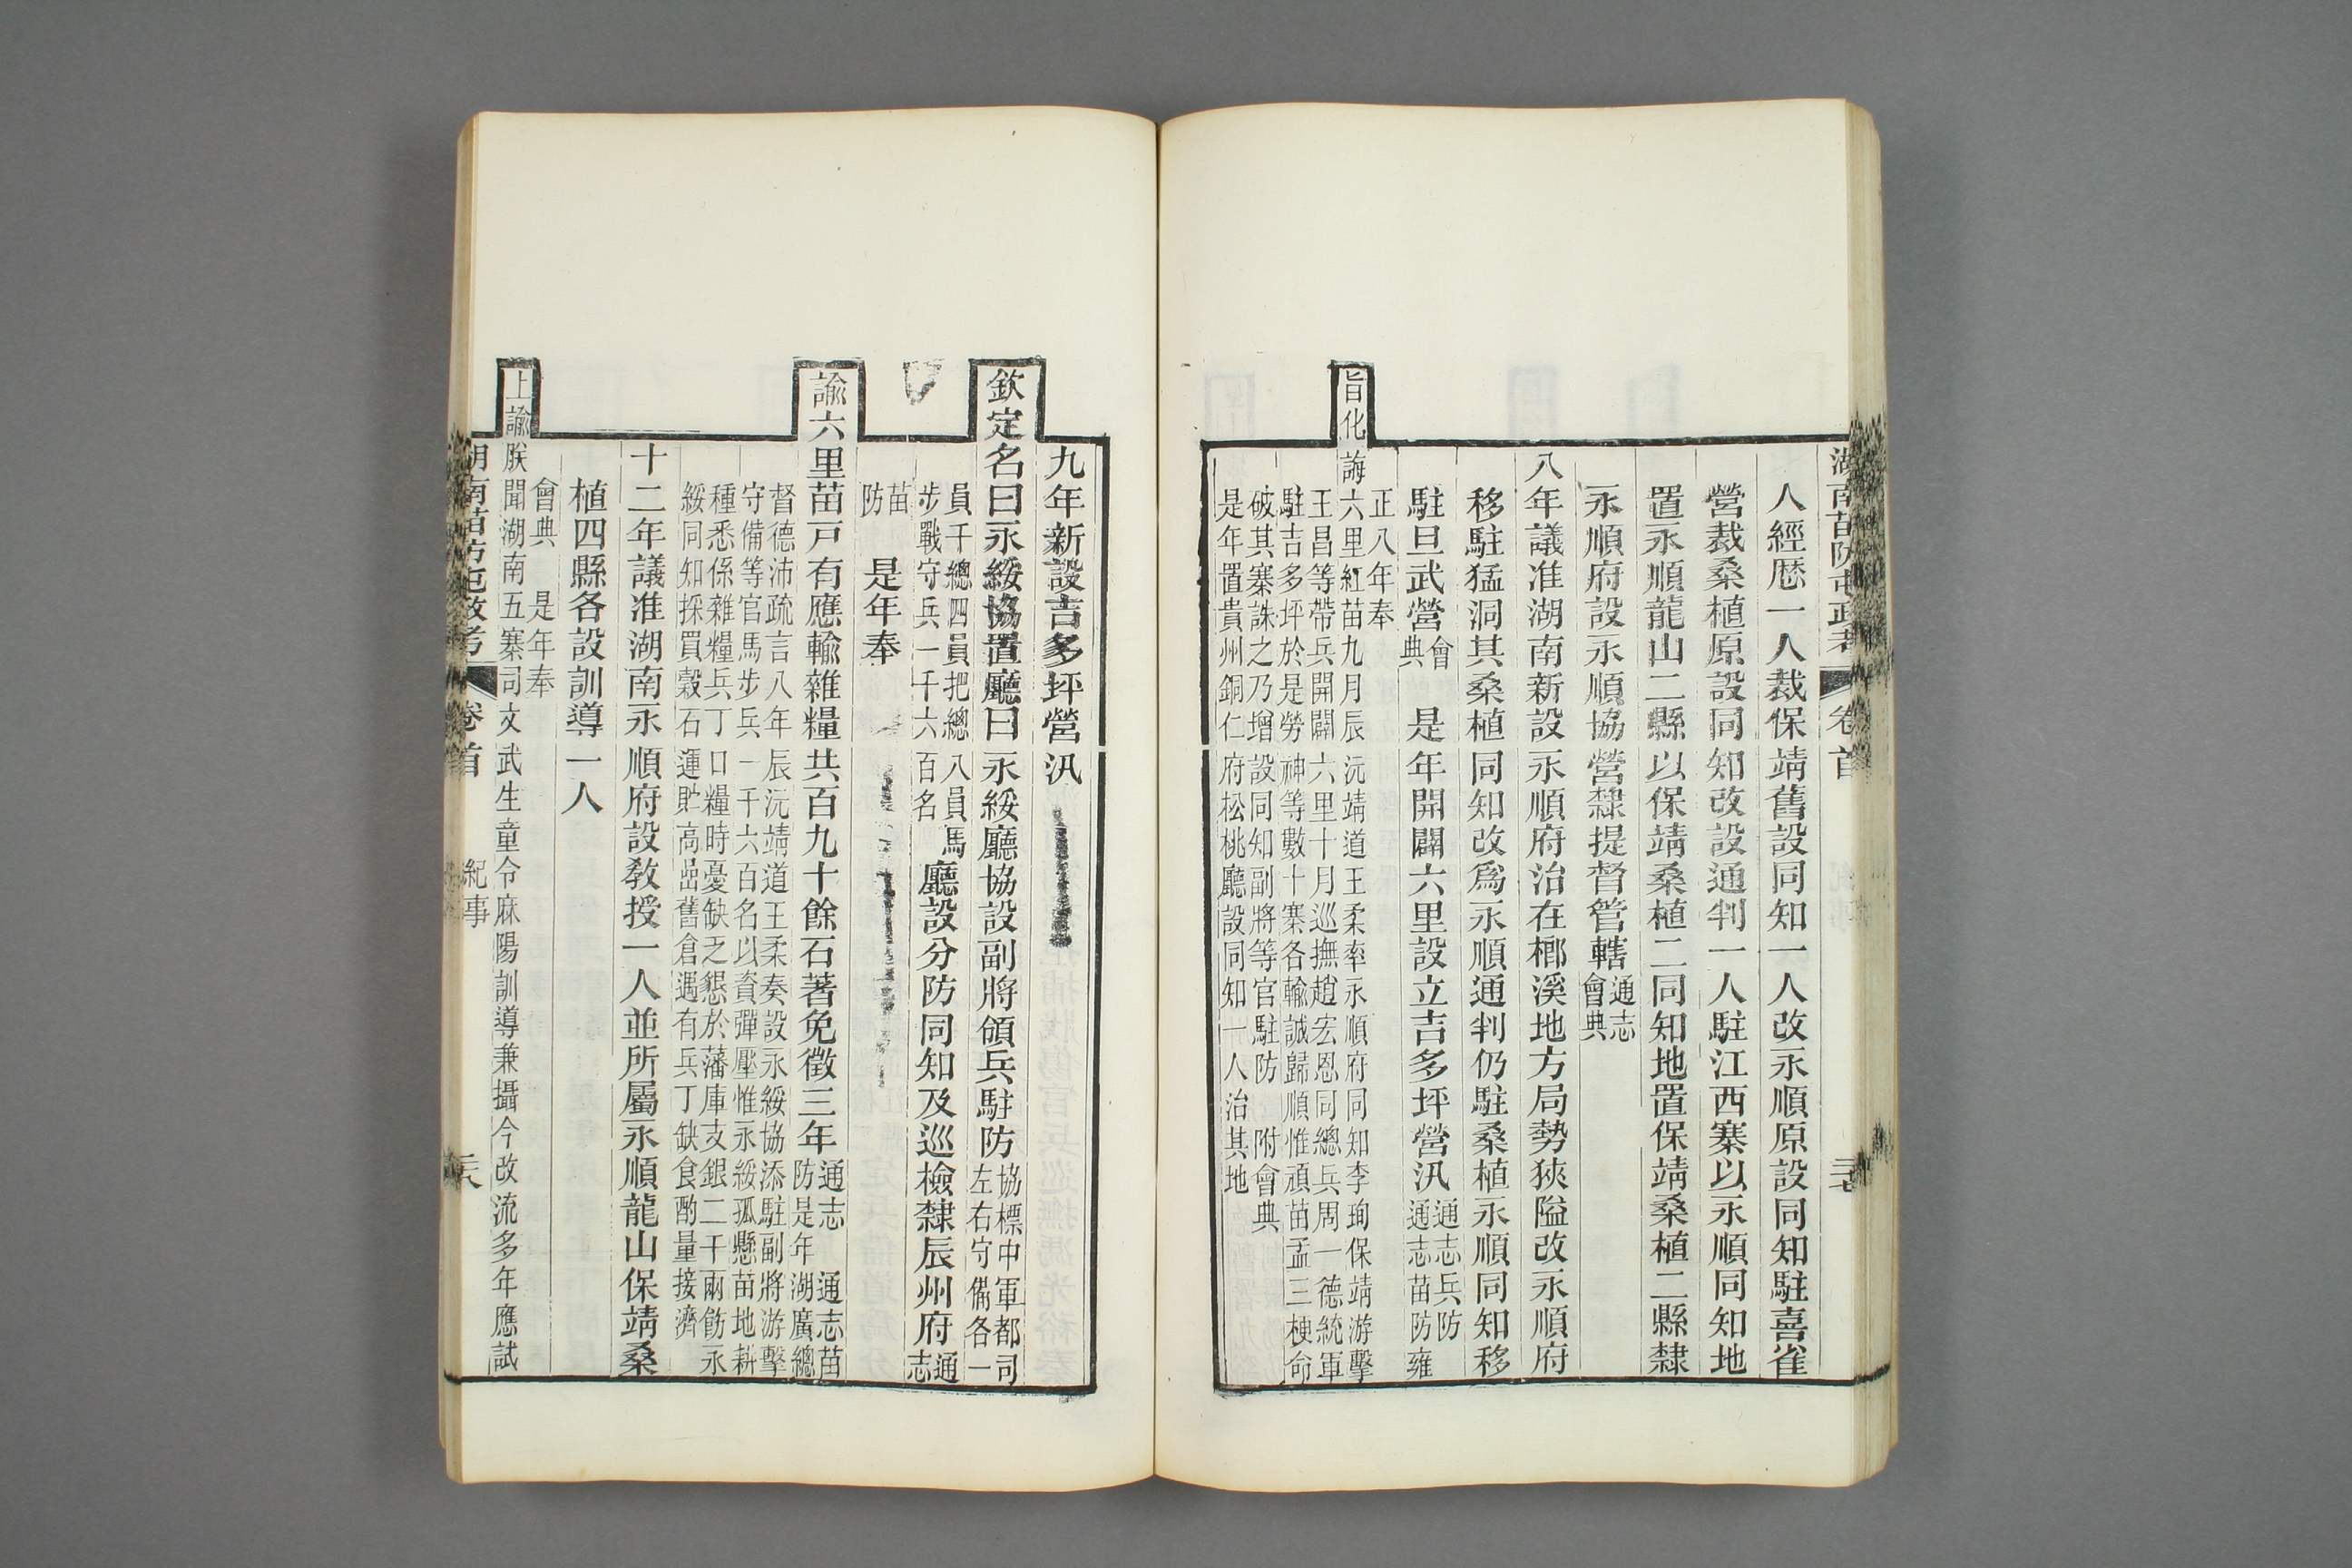 湖南苗防屯政考 卷首 二十七
人經厯一人裁保靖舊設同知一人改永順原設同知駐喜雀
營裁桑植原設同知改設通判一人駐江西寨以永順同知地
置永順龍山二縣以保靖桑植二同知地置保靖桑植二縣隸
永順府設永順協營隸提督管轄通志
會典
八年議准湖南新設永順府治在榔溪地方局勢狹隘改永順府
移駐猛洞其桑植同知改爲永順通判仍駐桑植永順同知移
駐旦武營會
典 是年開闢六里設立吉多坪營汛通志兵防
通志苗防雍
正八年奉
旨化誨六里紅苗九月辰沅靖道王柔率永順府同知李珣保靖游擊
王昌等帶兵開闢六里十月巡撫趙宏恩同總兵周一德統軍
駐吉多坪於是勞神等數十寨各輸誠歸順惟頑苗孟三梗命
破其寨誅之乃增設同知副將等官駐防 附會典
是年置貴州銅仁府松桃廳設同知一人治其地
九年新設吉多坪營汛
欽定名曰永綏協置廳曰永綏廳協設副將領兵駐防協標中軍都司
左右守備各一
員千總四員把總八員馬
步戰守兵一千六百名 廳設分防同知及巡檢隸辰州府通
志
苗
防 是年奉
諭六里苗戸有應輸雜糧共百九十餘石著免徵三年通志 通志苗
防是年湖廣總
督德沛疏言八年辰沅靖道王柔奏設永綏協添駐副將游擊
守備等官馬步兵一千六百名以資彈壓惟永綏孤懸苗地耕
種悉係雜糧兵丁口糧時憂缺乏懇於藩庫支銀二千兩飭永
綏同知採買穀石運貯高嵓舊倉遇有兵丁缺食酌量接濟
十二年議准湖南永順府設敎授一人並所屬永順龍山保靖桑
植四縣各設訓導一人
會典 是年奉
上諭朕聞湖南五寨司文武生童令麻陽訓導兼攝今改流多年應試
湖南苗防屯政考 卷首 紀事 二十八